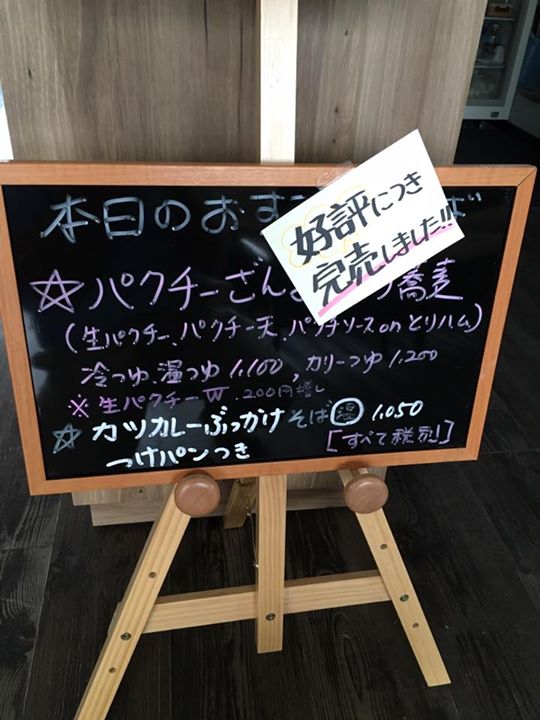 本日のおす
ば
好評につき
完売しました!!
☆パクチーざん
蕎麦
(生パクチー、パクチー天、パクチソースonとりハム)
冷つゆ、温つゆ 1,100 , カリーつゆ 1,200
※生パクチーW 200円増し
☆カツカレーぶっかけそば 温 1,050
つけパンつき
[すべて税別]